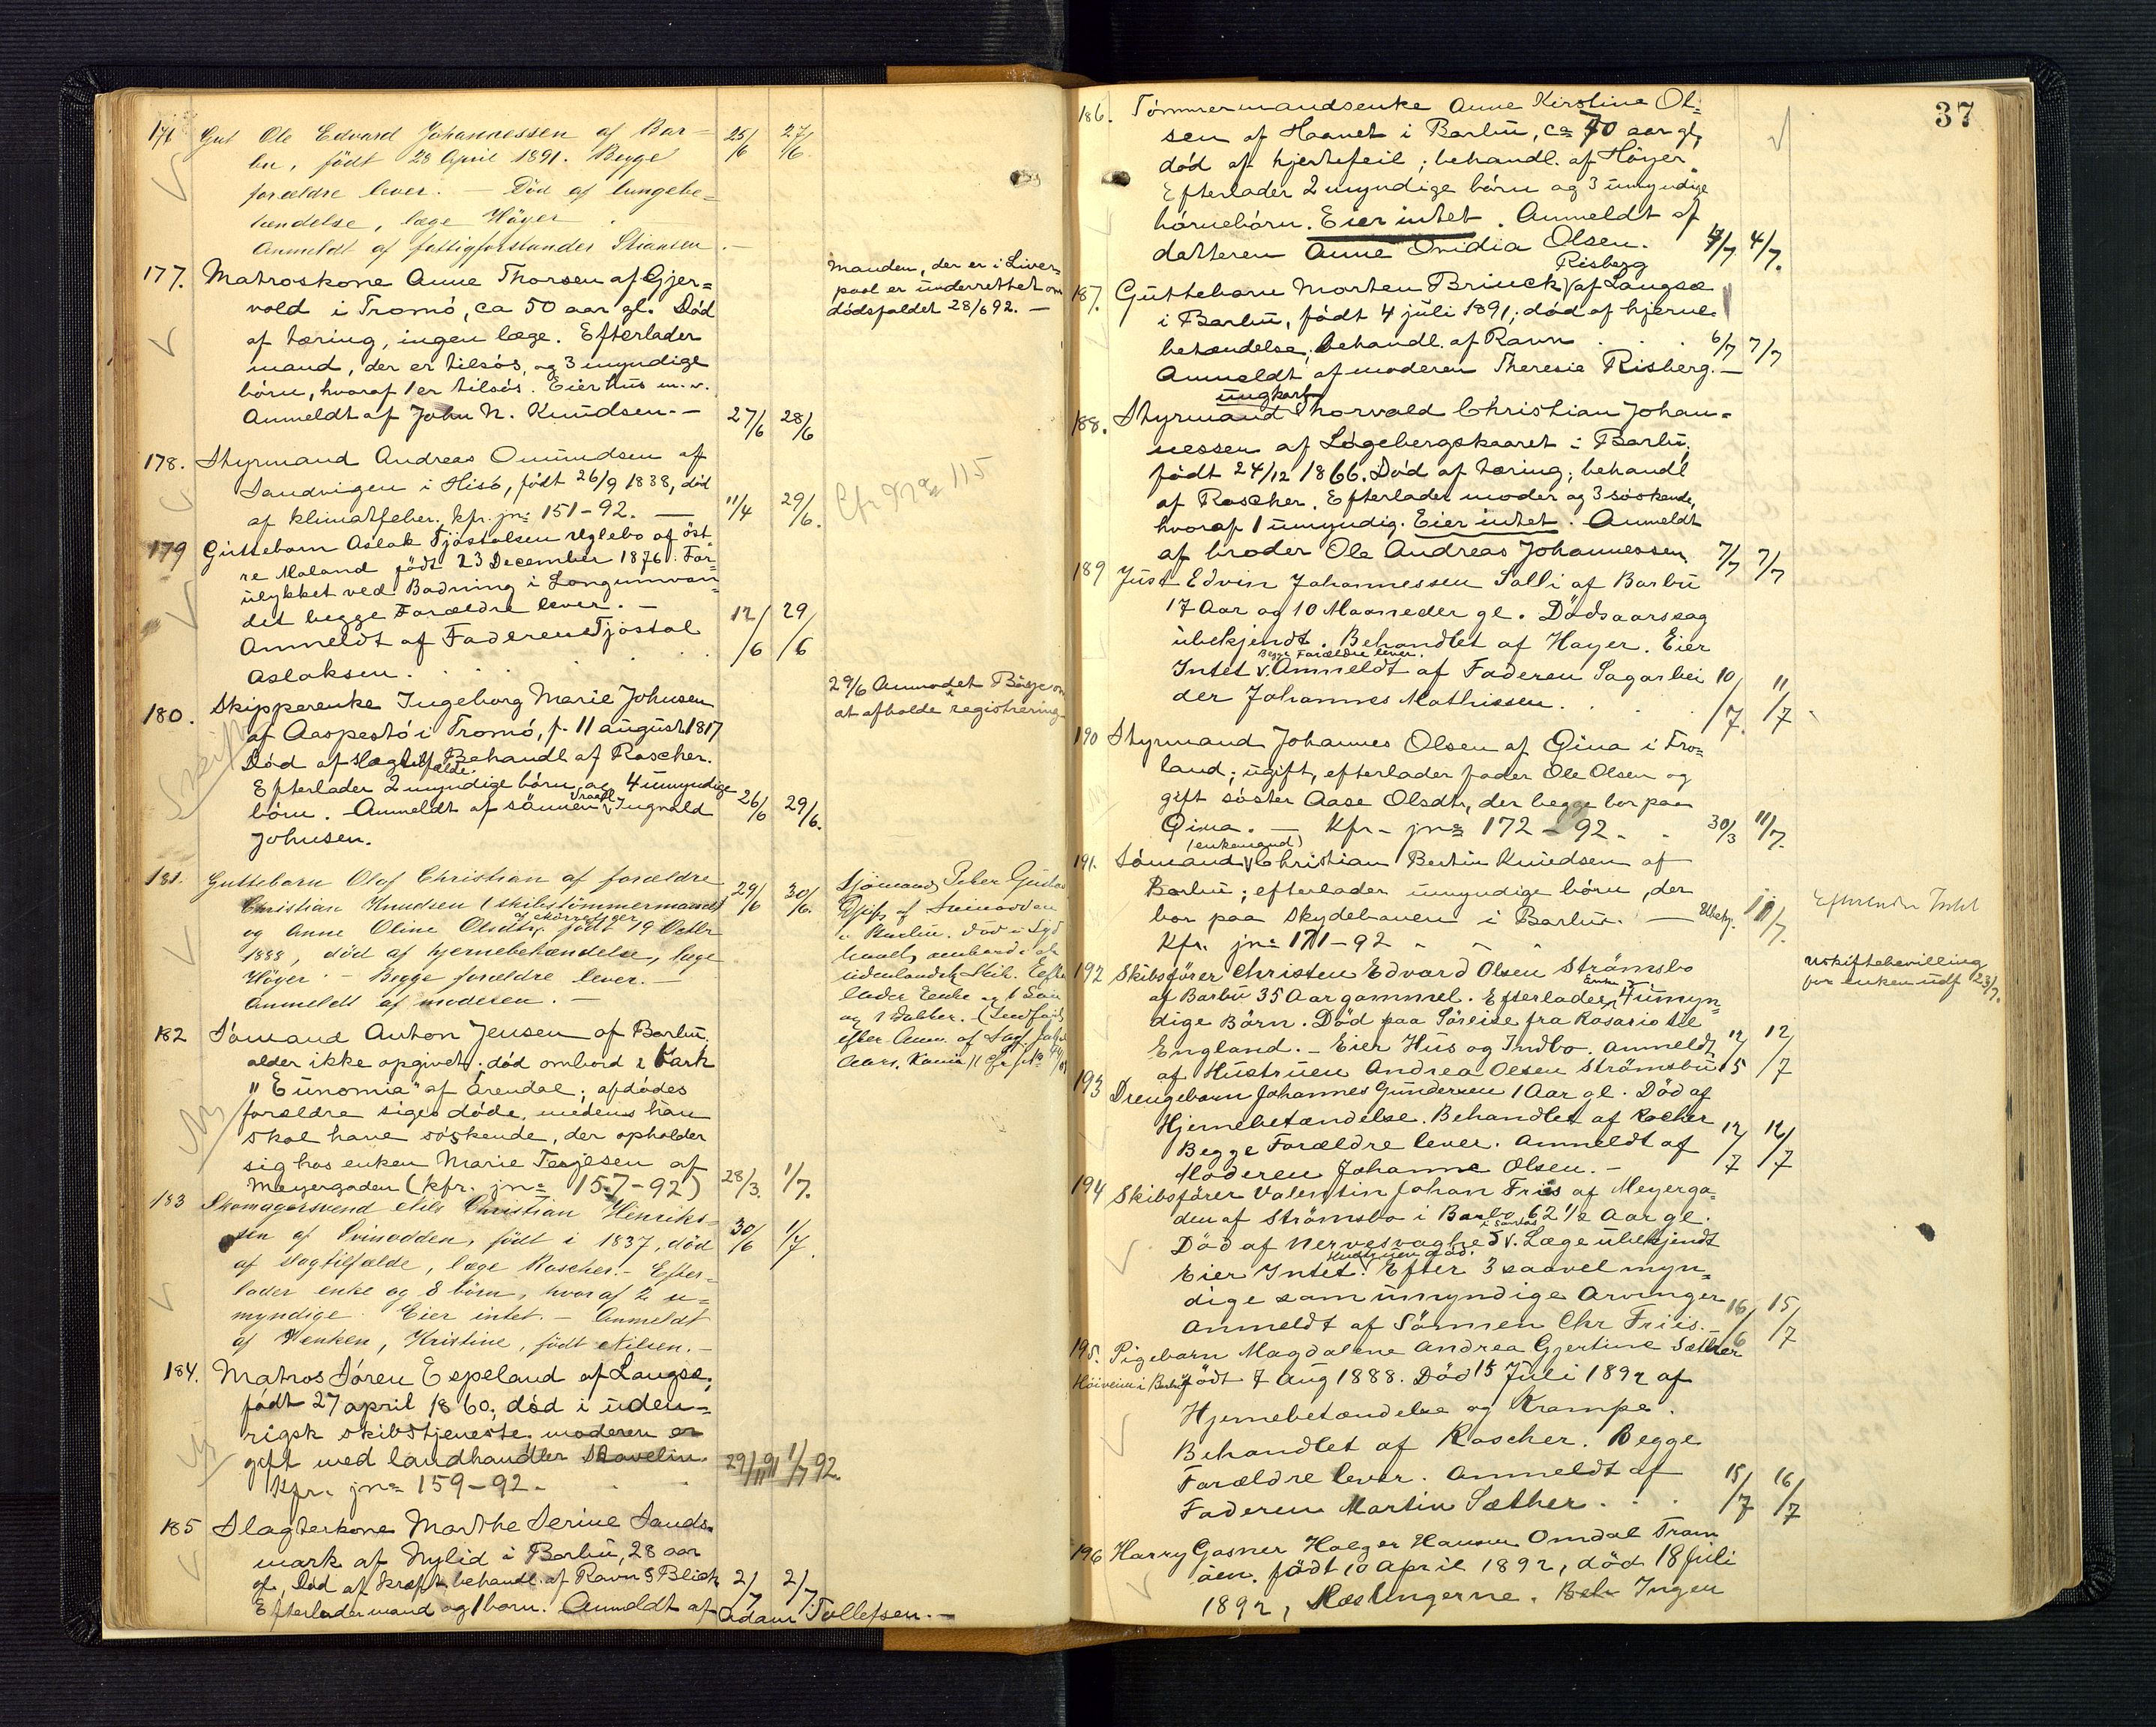 176 Gut Ole Edvard Johannessen af Bar=
bu, födt 28 April 1891. Begge
forældre lever. — Död af lungebe=
tændelse, læge Höyer.
Anmeldt af fattigforstander Stiansen. — 25/6 27/6
177. Matroskone Anne Thorsen af Gjer=
vold i Tromö, ca 50 aar gl. Död
af tæring, ingen læge. Efterlader
mand, der er tilsös, og 3 myndige
börn, hvoraf 1 er tilsös. Eier hus m.v.
Anmeldt af John N. Knudsen. — 27/6 28/6
Manden, der er i Liver=
pool er underrettet om
dödsfaldet 28/6 92. —
178. Styrmand Andreas Omundsen af
Sandvigen i Hisö, födt 26/9 1838, död
af klimatfeber, kfr. jn: 151-92. — 11/4 29/6.
Cfr 115
179 Guttebarn Aslak Tjöstolsen Uglebo af öst
re Moland födt 23 December 1876. For=
ulykket ved Badning i Longumvan=
det begge Forældre lever. —
Anmeldt af Faderen Tjöstol
Aslaksen. 12/6 29/6
180. Skipperenke Ingeborg Marie Johnsen
af Aaspestö i Tromö, f. 11 august 1817
Död af slagtilfælde. Behandl af Rascher.
Efterlader 2 myndige börn og 4 umyndige
börn. Anmeldt af sönnen Ingvald
Johnsen. 26/6 29/6.
Skifte
29/6 Anmodet Böye om
at afholde registrering
181. Guttebarn Olaf Christian af forældre
Christian Knudsen (skibstömmermand)
og Anne Oline Olsdtr, födt 19 Octbr
1888, död af hjernebetændelse, læge
Höyer. — Begge forældre lever. —
Anmeldt af moderen. — 29/6 30/6.
Sjömand Peder Gustav
af Svinodden
i Barbu. död i Syd
ombord i et
udenlandsk Skib. Efter
lader Enke og 1 Sön
og 1 Datter.
efter Anm. af
182 Sömand Anton Jensen af Barbu,
alder ikke opgivet; död ombord i bark
"Eunomia" af Arendal; afdödes
forældre siges döde, medens han
skal have söskende, der opholder
sig hos enken Marie Terjesen af
Meyergaden (kfr. jn: 157-92) 28/3. 1/7.
183 Skomagersvend Nils Christian Henriks=
sen af Svinodden, födt i 1837, död
af slagtilfælde, læge Rascher. — Efter=
lader enke og 8 börn, hvoraf 2 u=
myndige. Eier intet. — Anmeldt
af enken, Kristine, födt Nilsen. — 30/6 1/7.
184. Matros Sören Espeland af Langsæ,
födt 27 april 1860, död i uden=
rigsk skibstjeneste. moderen er
gift med landhandler Skavelin.
Kfr. jn: 159-92. 29/11 91 1/7 92.
185 Slagterkone Marthe Serine Sands=
mark af Nylid i Barbu, 28 aar
gl, död af kræft, behandl. af Ravn & Blick 2/7 2/7.
Efterlader mand og 1 barn. Anmeldt af Adam Tollefsen. —
37
186. Tömmermandsenke Anne Kirstine Ol=
sen af Haavet i Barbu, ca 70 aar gl,
död af hjertefeil; behandl. af Höyer.
Efterlader 2 myndige börn og 3 umyndige
börnebörn. Eier intet. Anmeldt af
datteren Anne Ovidia Olsen. 4/7 4/7.
Risberg
187. Guttebarn Morten Brinck af Langsæ
i Barbu, födt 4 juli 1891; död af hjerne
betændelse; behandl. af Ravn . . . 6/7 7/7
Anmeldt af moderen Theresie Risberg. —
ungkarl
188. Styrmand Thorvald Christian Johan=
nessen af Lögebergskaaret i Barbu,
födt 24/12 1866. Död af tæring; behandl
af Rascher. Efterlader moder og 3 söskende,
hvoraf 1 umyndig. Eier intet. Anmeldt
af broder Ole Andreas Johannessen 7/7 7/7
189 Just Edvin Johannessen Salli af Barbu
17 Aar og 10 Maaneder gl. Dödsaarsag
ubekjendt. Behandlet af Høyer. Eier
Begge Forældre lever.
Intet v. Anmeldt af Faderen Sagarbei
der Johannes Mathissen. 10/7. 11/7
190 Styrmand Johannes Olsen af Qina i Fro=
land; ugift, efterlader fader Ole Olsen og
gift söster Aase Olsdtr, der begge bor paa
Qina. — Kfr. jn: 172-92. . 30/3 11/7.
(enkemand)
191. Sömand Christian Bertin Knudsen af
Barbu; efterlader umyndige börn, der
bor paa Skydebanen i Barbu. — Ubekj. 11/7.
Kfr. jn: 171-92
Efterlader Intet
192 Skibsförer Christen Edvard Olsen Strömsbo
af Barbu 35 Aar gammel. Efterlader Enke umyn=
dige Börn. Död paa Söreise fra Rosario til
England. — Eier Hus og Indbo. Anmeldt
af Hustruen Andrea Olsen Strömsbu 12/5 12/7
Uskiftebevilling
for enken udf 23/7.
193 Drengebarn Johannes Gundersen 1 Aar gl. Död af
Hjernebetændelse. Behandlet af Rocher
Begge Forældre lever. Anmeldt af
Moderen Johanne Olsen. — 12/7 12/7
194 Skibsförer Valentin Johan Friis af Meyerga=
den af Strömsbo i Barbo 62 1/2 Aar gl.
Död af Nervesvaghed v. Læge ubekjendt
Hustruen död.
Eier Intet. Efter 3 saavel myn=
dige som umyndige Arvinger
Anmeldt af Sönnen Chr Friis. 16/6 15/7
195. Pigebarn Magdalene Andrea Gjertine Sæther
Höiveien i Barbu födt 7 Aug 1888. Död 15 Juli 1892 af
Hjernebetændelse og Krampe.
Behandlet af Rascher. Begge
Forældre lever. Anmeldt af
Faderen Martin Sæther. . . 15/7 16/7
196 Harry Gasner Holger Hansen Omdal Trom
öen. födt 10 April 1892, död 18 Juli
1892, Mæslingerne. Beh Ingen